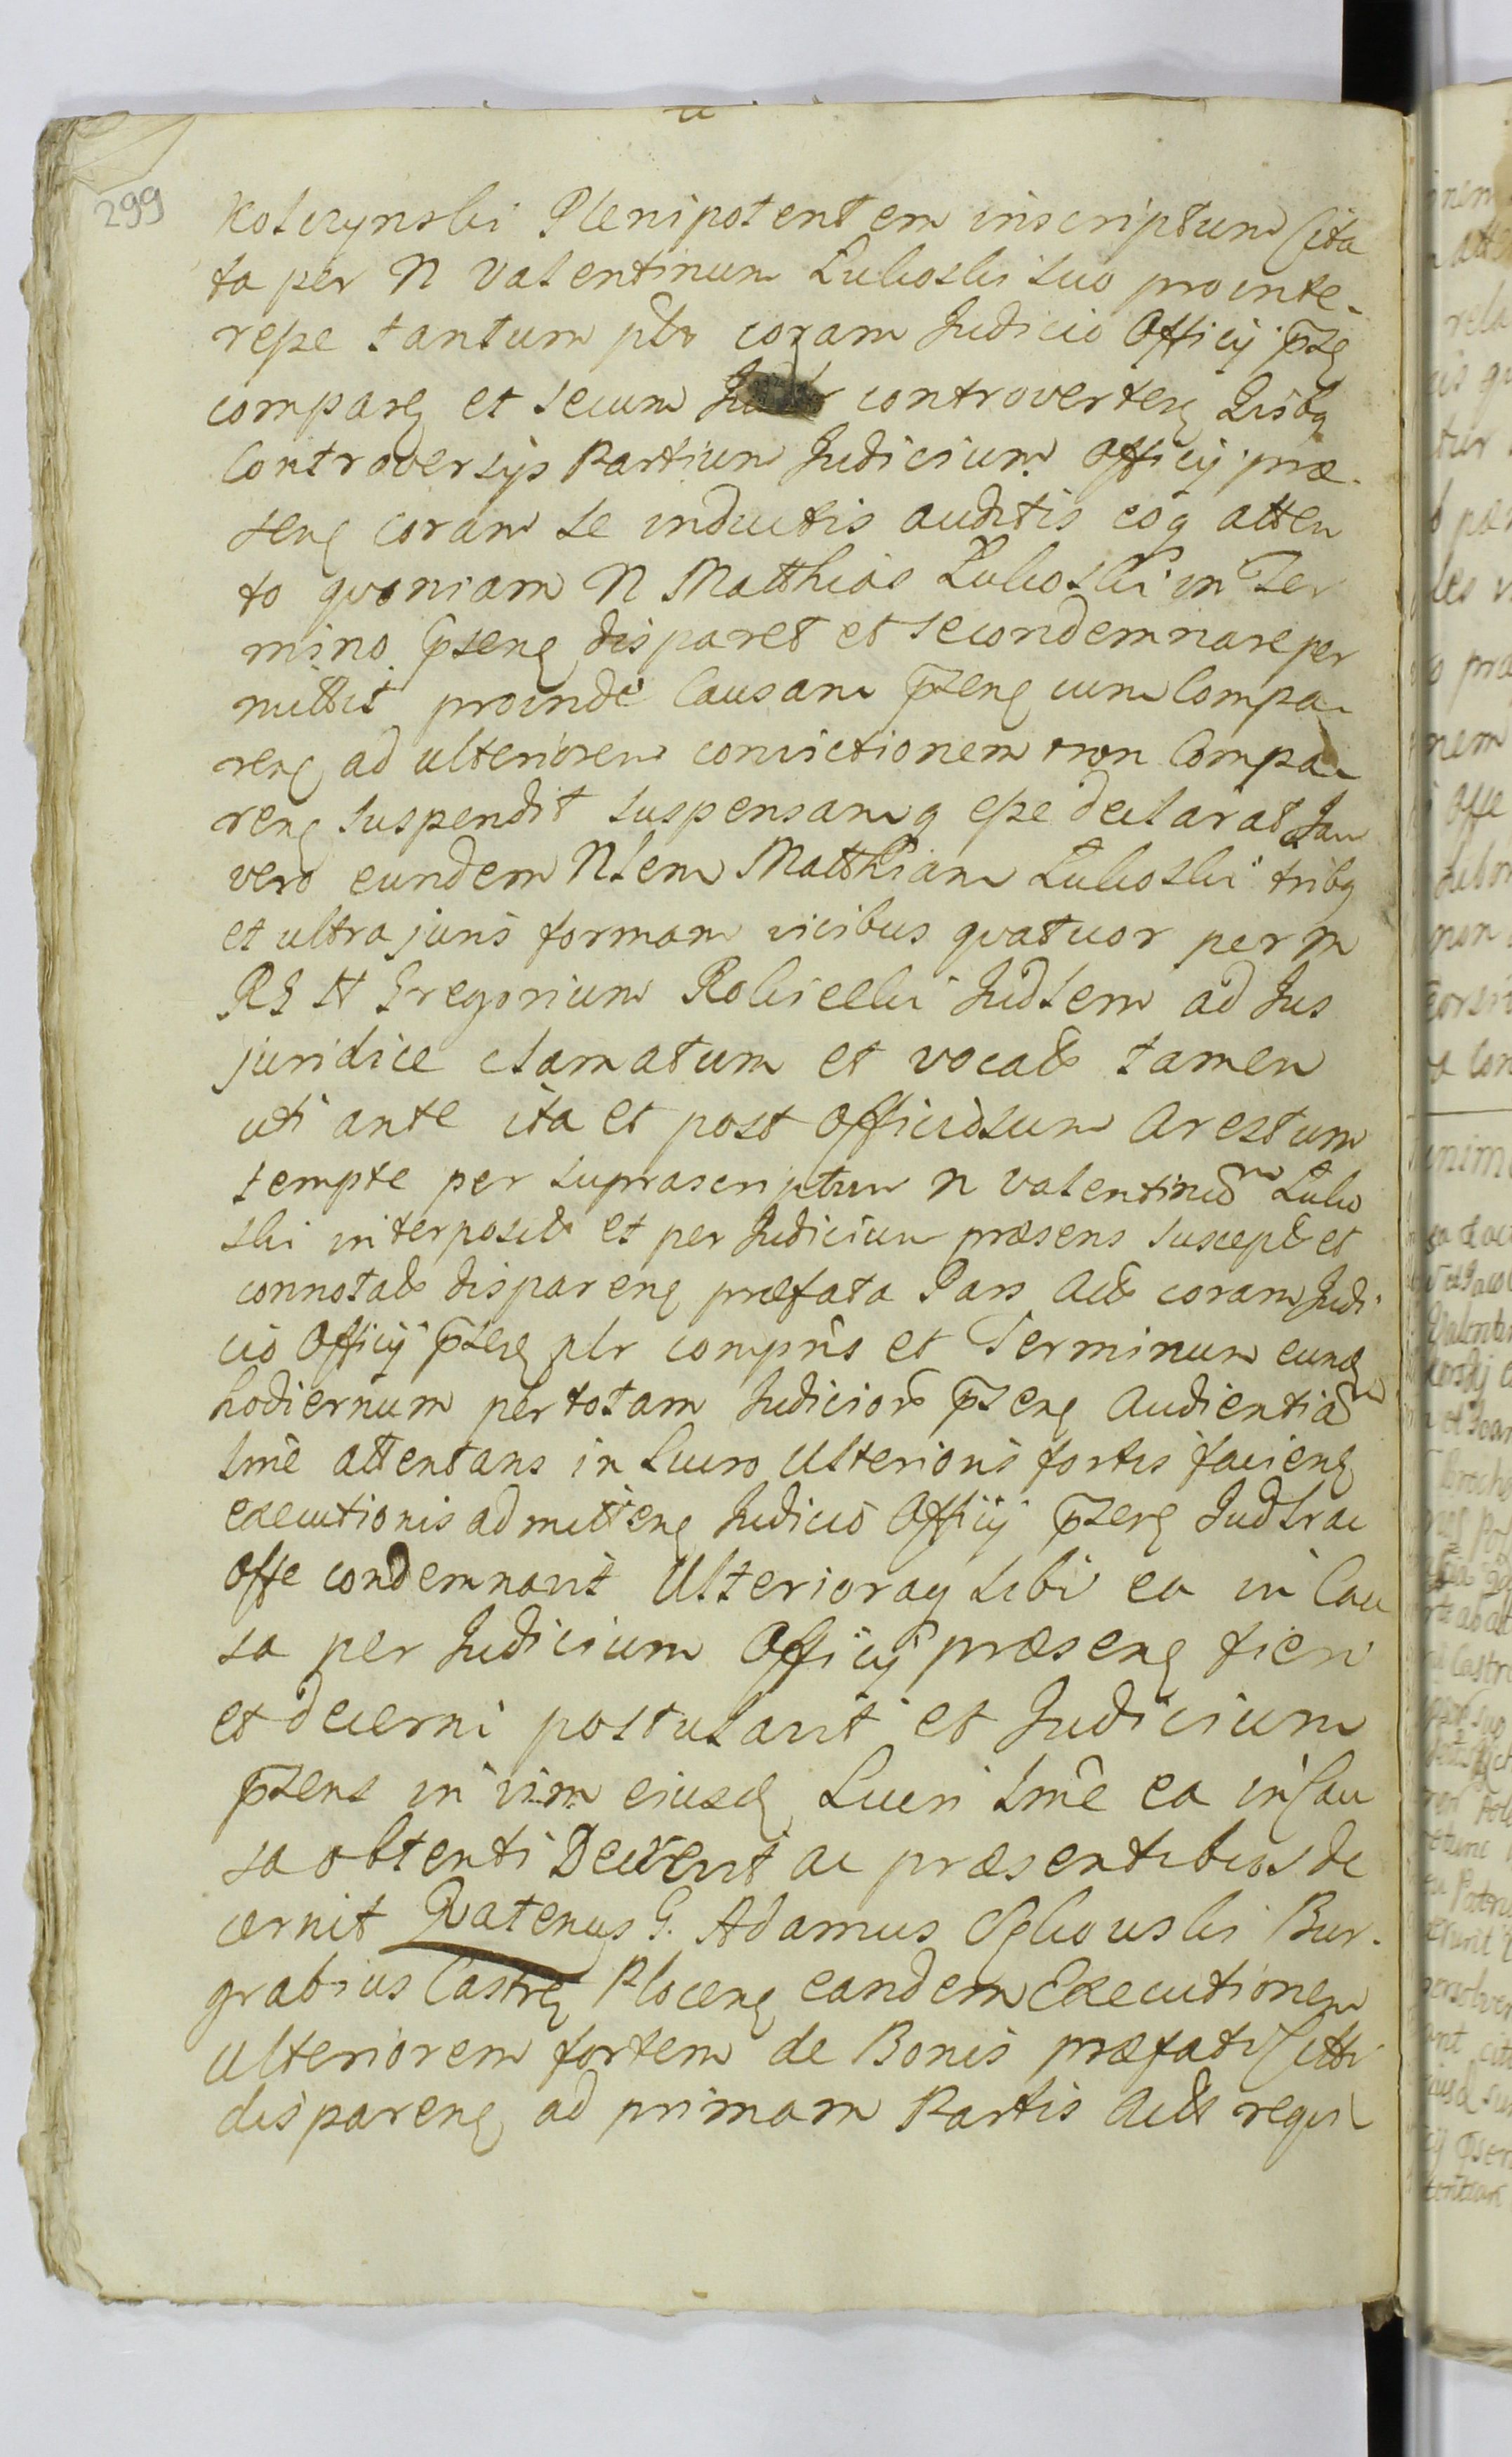 299
Kolczynski Plenipotentem inscriptum Cita
ta per N Valentinum Lukoski suo pro inte-
resse tantum plr coram Judicio Officij pn̄tẹ
comparẹ et secum controvertenẹ Quibꝗ
Controversijs Partium Judicium Officij præ-
senẹ coram se inductis auditis eoꝗ atten
to quoniam N Matthias Lukoski in Ter
mino p̄senẹ disparet et se condemnare per
mittit proinde Causam p̄senẹ cum Compa-
renẹ ad ulteriorem convictionem non Compa-
renẹ suspendit suspensamꝗ esse declarat Jam
vero eundem Nlem Matthiam Lukoski tribꝗ
et ultra juris formam vicibus quatuor per M
RS N Gregorium Rokicki Judlem ad Jus
juridice clamatum et vocat tamen
uti ante ita et post Officiosum Arestum
sempte per suprascriptum N Valentinum Luko
ski interposit et per Judicium præsens suscept et
connotat disparenẹ præfata Pars Act coram Judi
cio Officij p̄senẹ plr compns et Terminum eund
hodiernum per totam Judicior p̄senẹ Audientiam
lmē attentans in Lucro Ulterioris fortis faciens
executionis admittenẹ Judicio Officij p̄senẹ Judlrae
Offe condemnavit Ulterioraꝗ sibi ea in Cau
sa per Judicium Officij præsenẹ fieri
et decerni postulavit et Judicium
p̄sens in vim eiusd Lucri lmē ea in Cau
sa obtenti Decrevit ac præsentibus de
cernit Quatenus G. Adamus Bur-
grabius Castrẹ Plocenẹ eandem Executionem
Ulteriorem fortem de Bonis præfati Citti
disparenẹ ad primam Partis Act requi